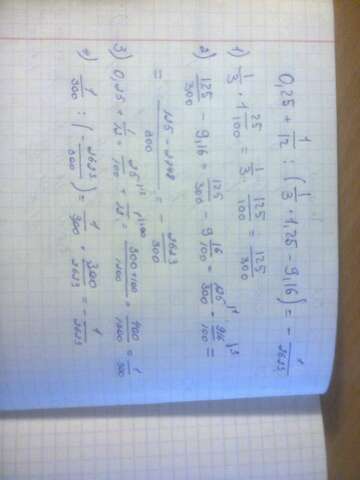 0,25 + 1/12 : (1/3 · 1,25 - 9,16) = - 1/2623
1) 1/3 · 1 25/100 = 1/3 · 125/100 = 125/300
2) 125/300 - 9,16 = 125/300 - 9 16/100 = 125/300 - 916/100 =
= 125 - 2748/300 = - 2623/300
3) 0,25 + 1/12 = 25/100 + 1/12 = 300 + 100/1200 = 400/1200 = 1/300
4) 1/300 : (- 2623/300) = 1/300 · 300/2623 = - 1/2623